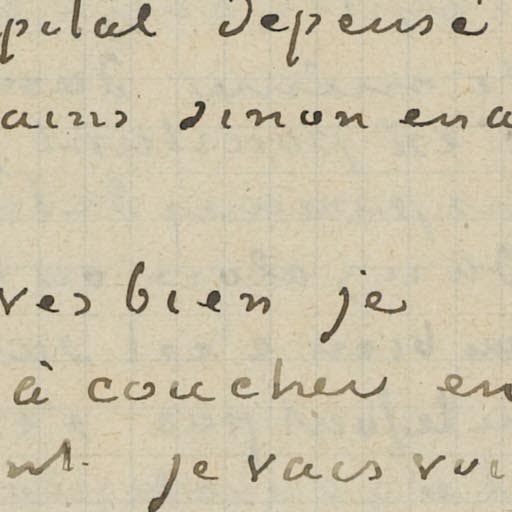 pital depensé
ains sinon ena
ves bien je
à coucher en
nt. je vais voi